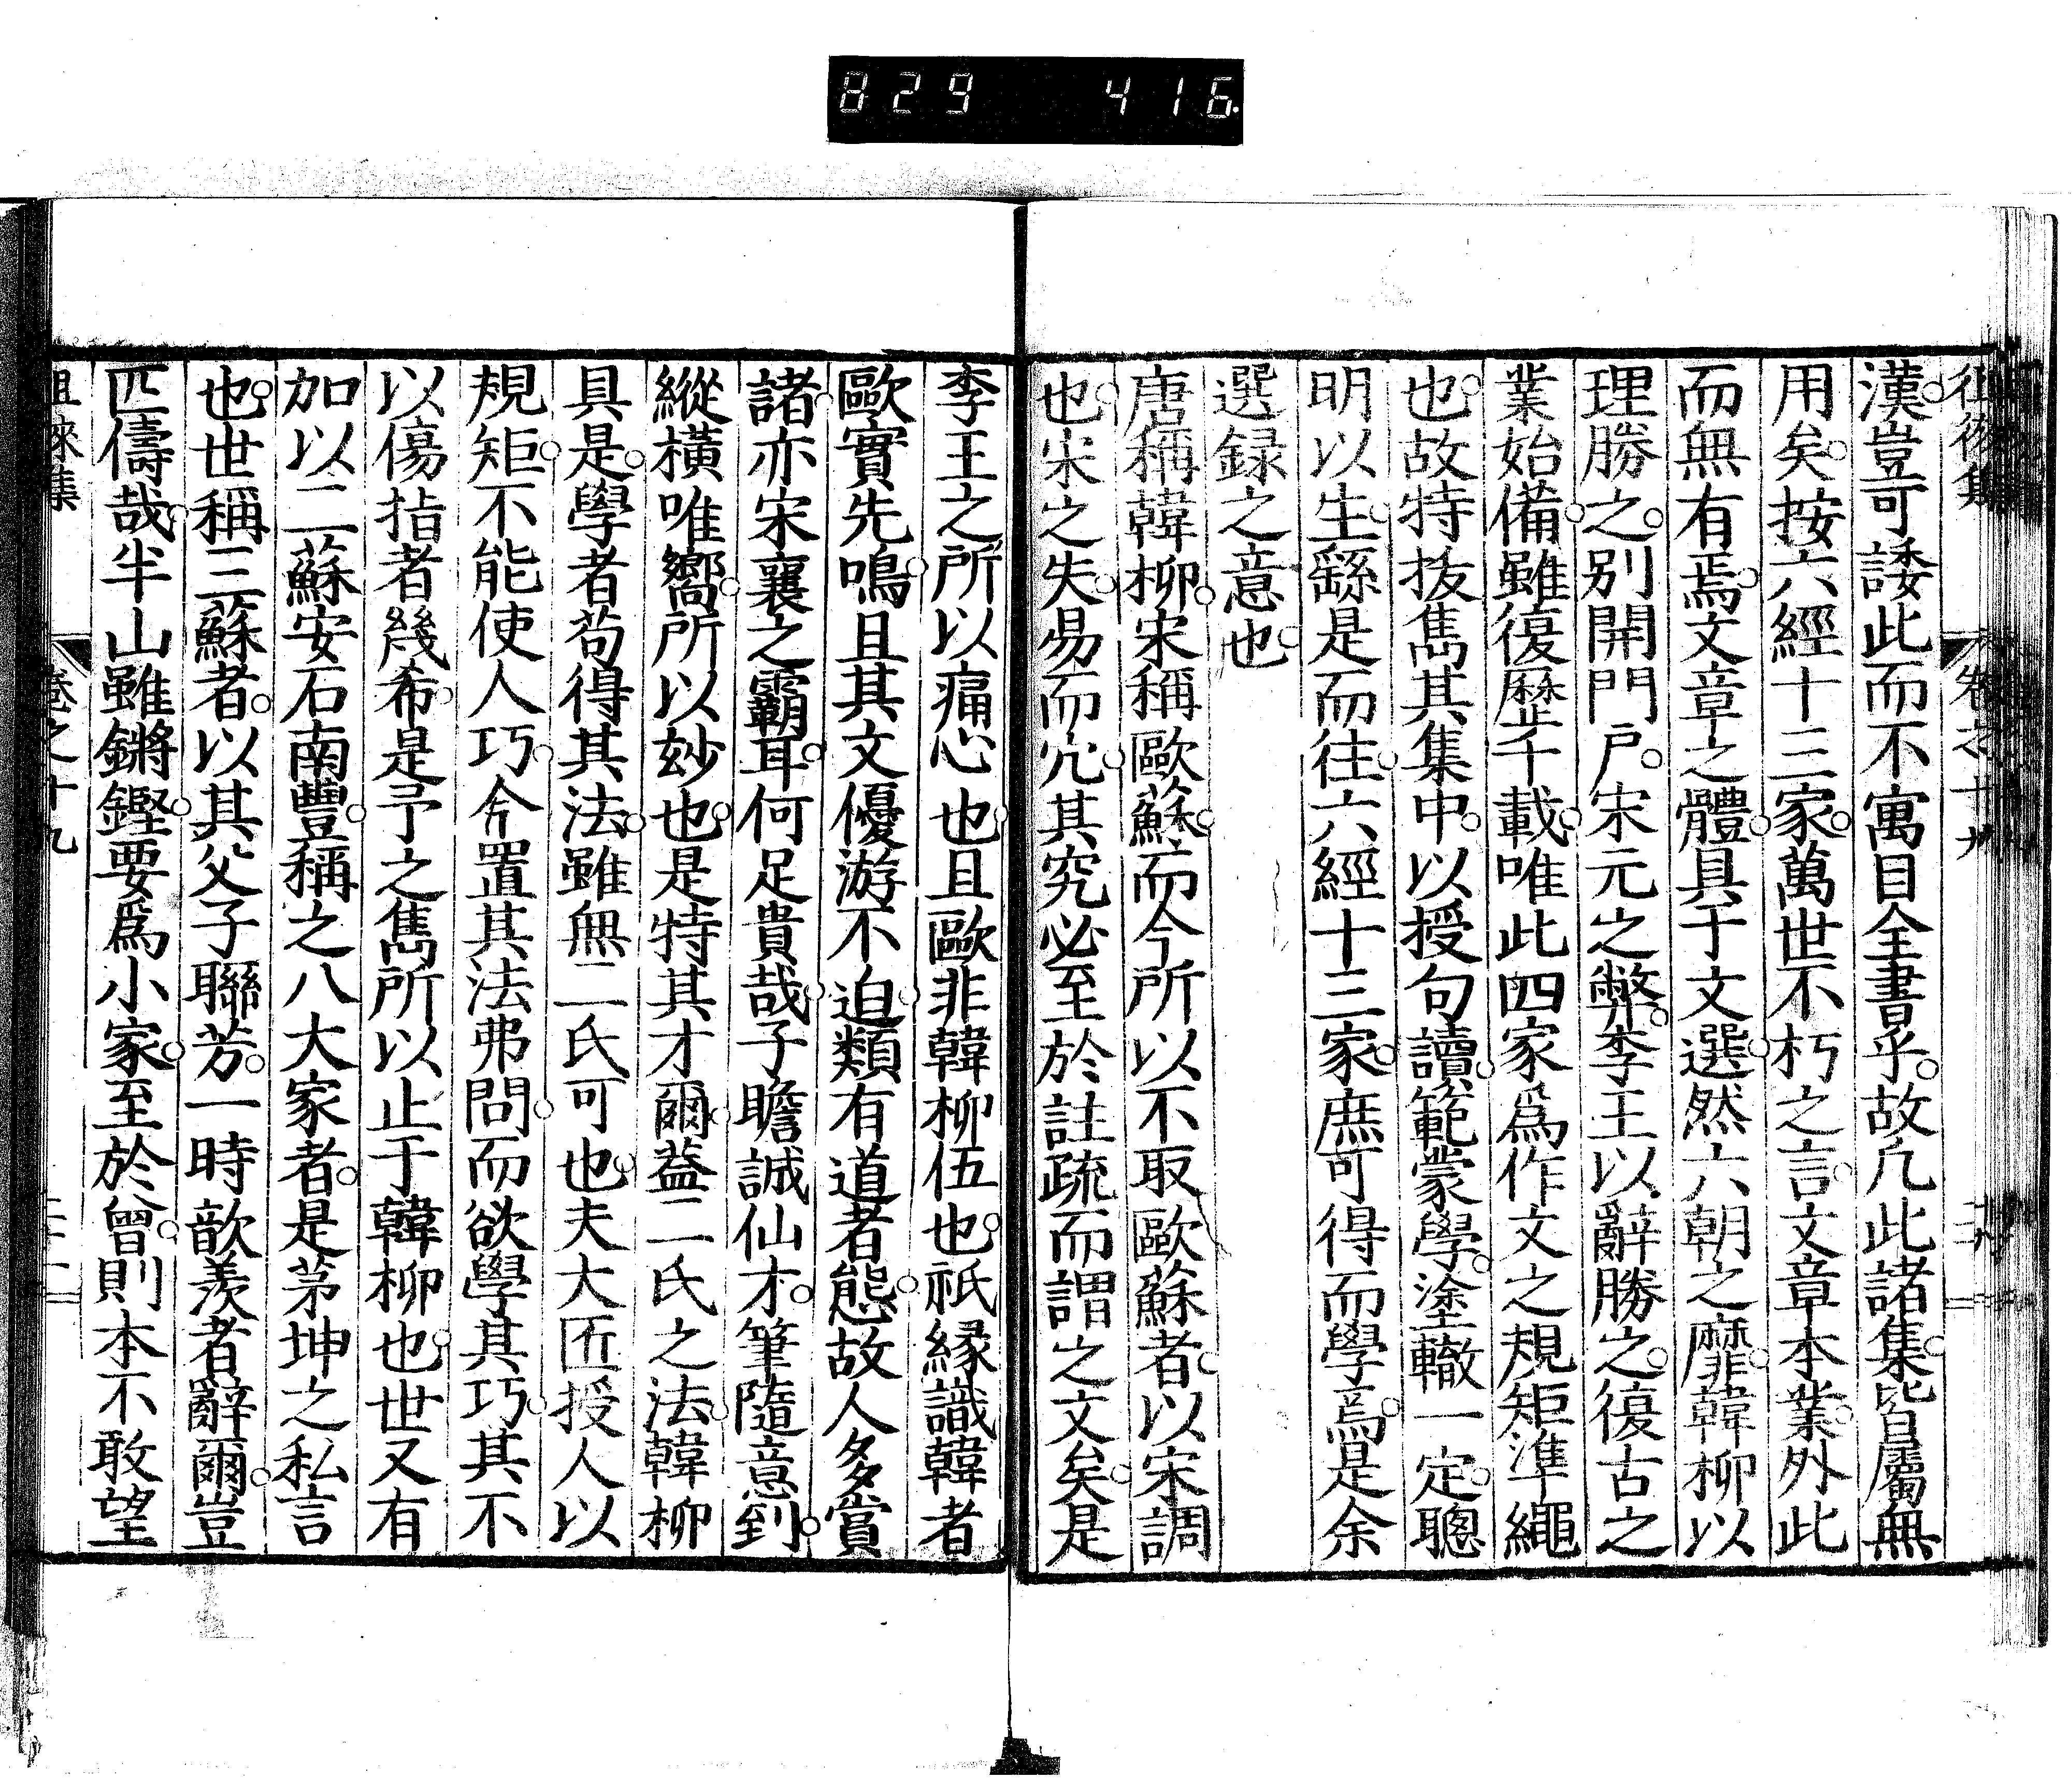 829 416
徂徠集 卷之十九
漢。豈可諉此而不寓目全書乎。故凡此諸集。皆屬無
用矣。按六經十三家。萬世不朽之言。文章本業。外此
而無有焉。文章之體。具于文選。然六朝之靡。韓柳以
理勝之。別開門戶。宋元之弊。李王以辭勝之。復古之
業始備。雖復歷千載。唯此四家爲作文之規矩準繩
也。故特拔雋其集中。以授句讀。範蒙學。塗轍一定。聰
明以生。繇是而往。六經十三家。庶可得而學焉。是余
選録之意也。
唐稱韓柳。宋稱歐蘇。而今所以不取歐蘇者。以宋調
也。宋之失。易而冗。其究必至於註疏而謂之文矣。是
李王之所以痛心也。且歐非韓柳伍也。祇緣識韓者
歐實先鳴。且其文優游不迫。類有道者態。故人多賞
諸。亦宋襄之霸耳。何足貴哉。子瞻誠仙才。筆隨意到。
縱橫唯嚮。所以玅也。是特其才爾。葢二氏之法。韓柳
具是。學者苟得其法。雖無二氏可也。夫大匠授人以
規矩。不能使人巧。今置其法弗問。而欲學其巧。其不
以傷指者幾希。是予之雋所以止于韓柳也。世又有
加以二蘇安石南豐。稱之八大家者。是茅坤之私言
也。世稱三蘇者。以其父子聯芳。一時歆羨者辭爾。豈
匹儔哉。半山雖鏘鏗。要爲小家。至於曾。則本不敢望
徂徠集 卷之十九